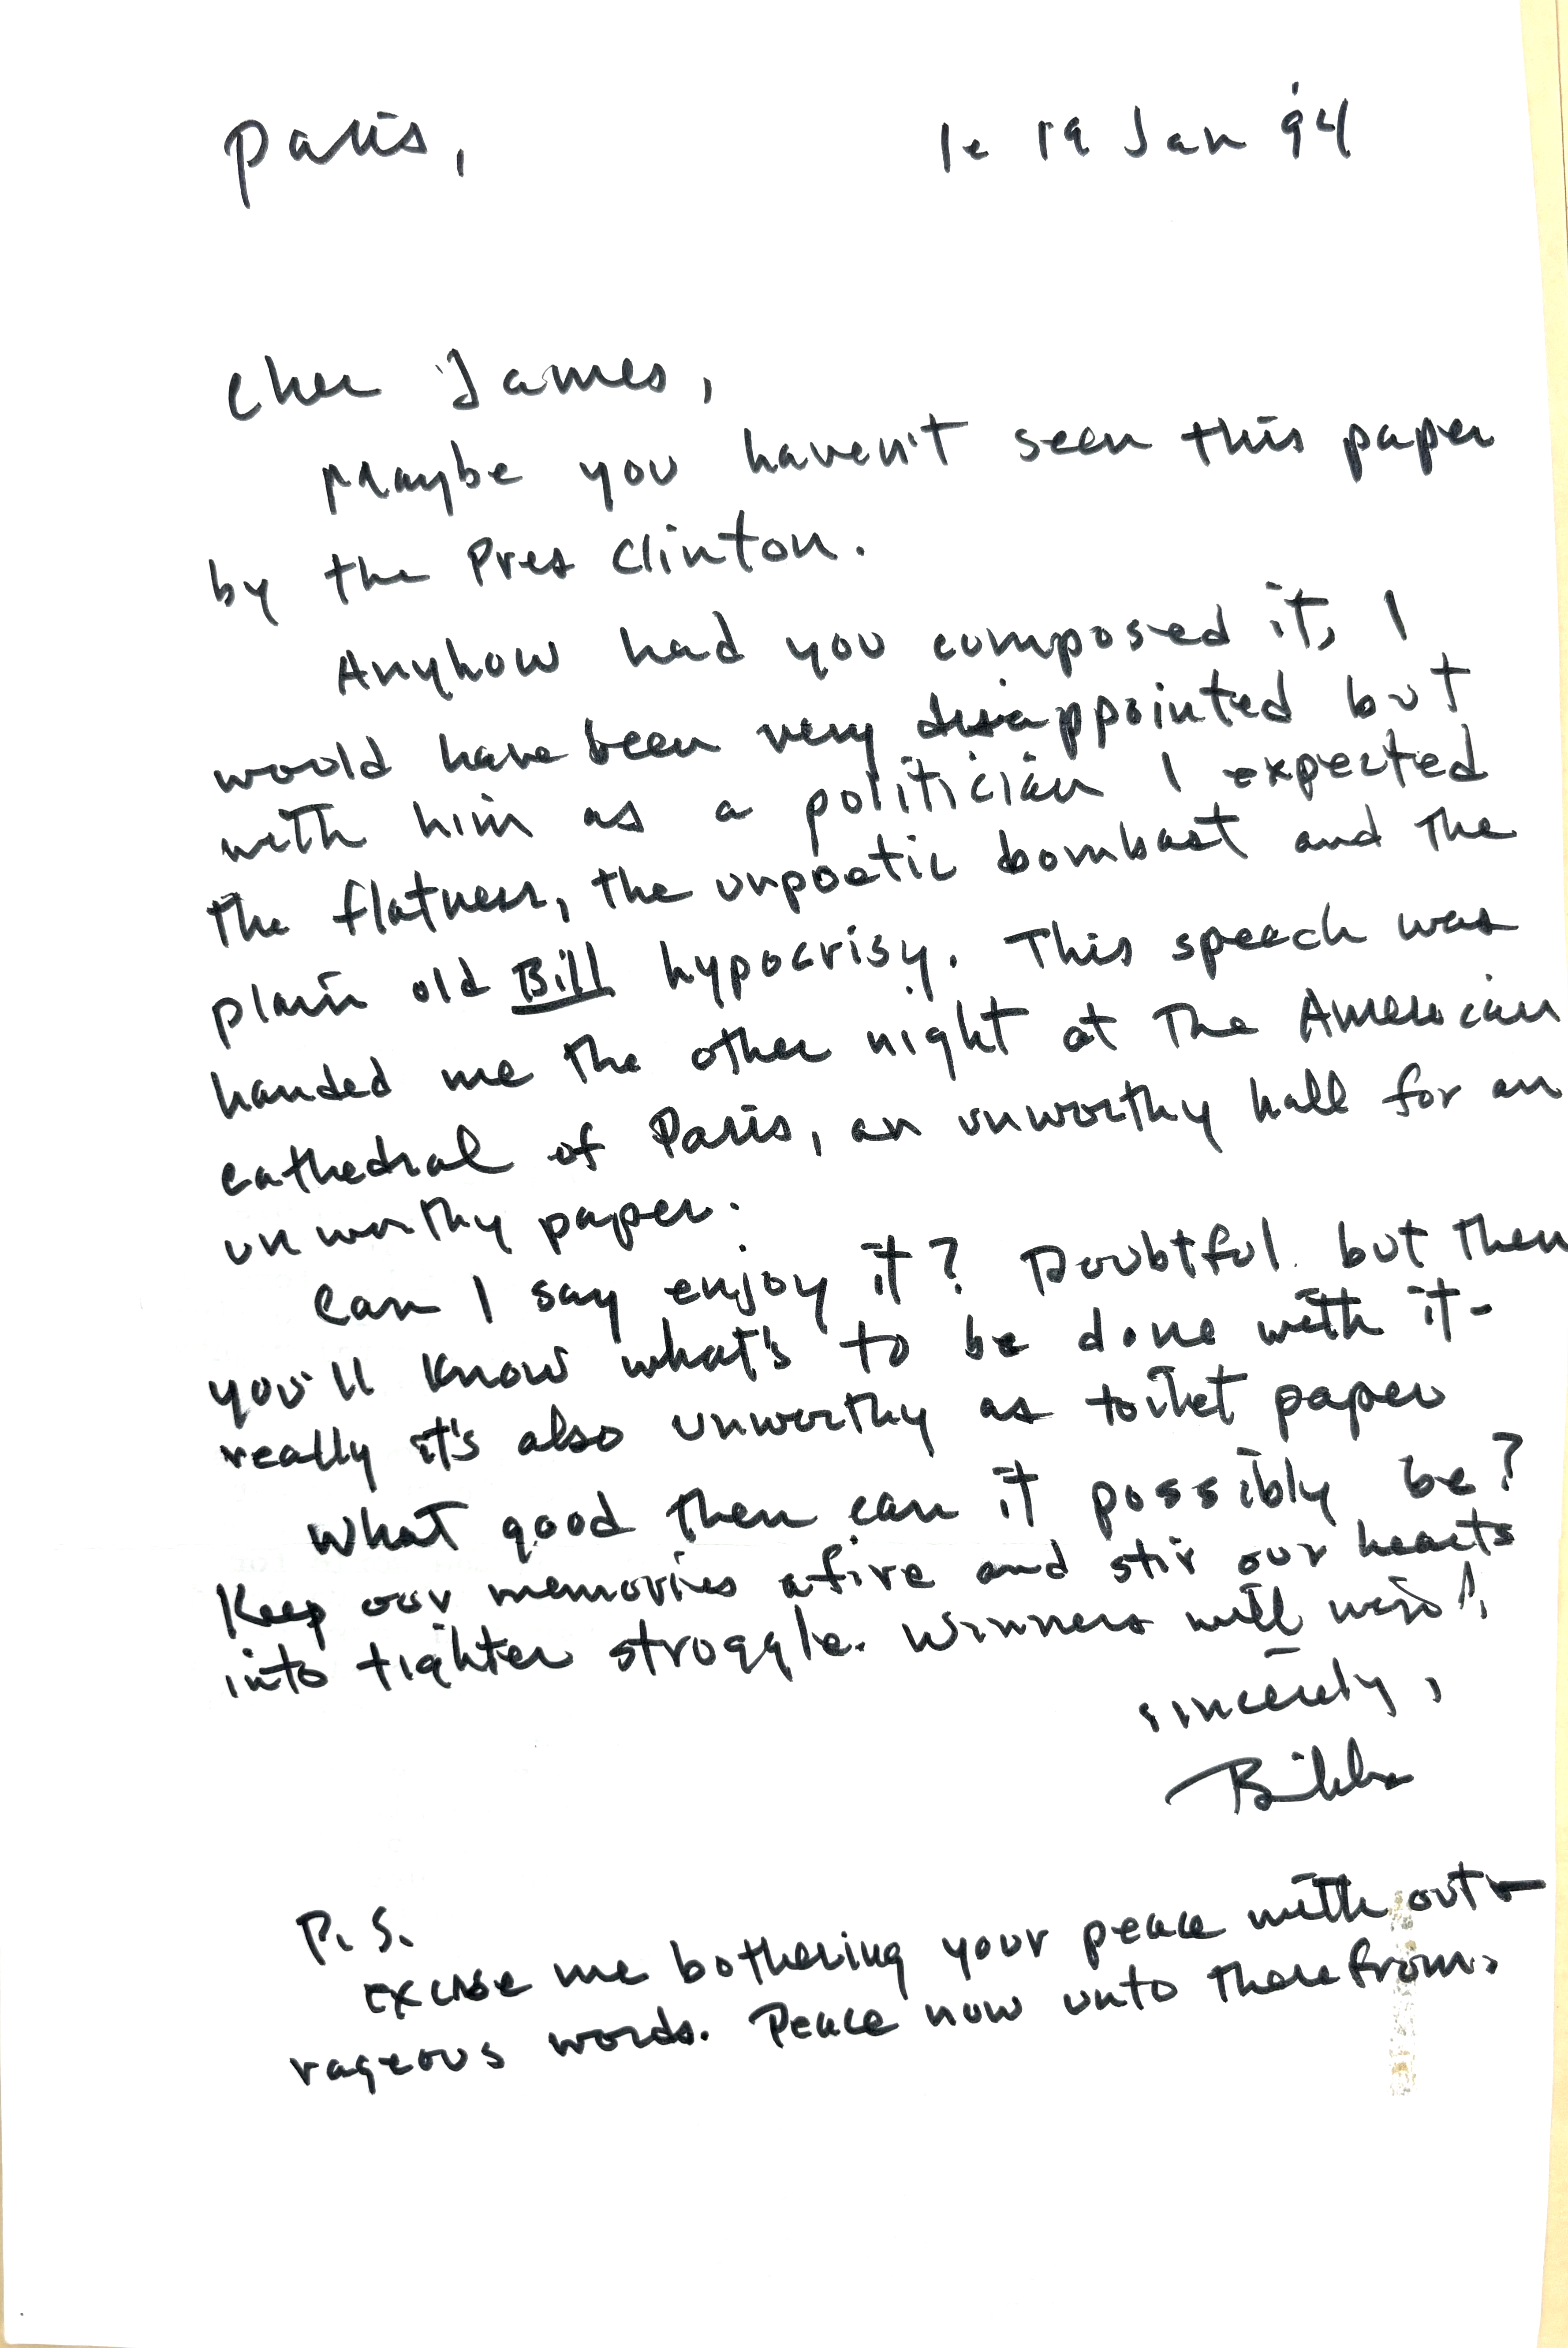 Paris, le 19 Jan '94
Cher James,
Maybe you haven't seen this paper
by the Pres Clinton.
Anyhow had you composed it, I
would have been very disappointed but
with him as a politician I expected
the flatness, the unpoetic bombast and the
plain old Bill hypocrisy. This speech was
handed me the other night at the American
cathedral of Paris, an unworthy hall for an
unworthy paper.
Can I say enjoy it? Doubtful. but then
you'll know what's to be done with it-
really it's also unworthy as toilet paper
What good then can it possibly be?
Keep our memories afire and stir our hearts
into tighter struggle. Winners will win!
sincerely,
P.S.
Excuse me bothering your peace with out-
rageous words. Peace now unto therefrom.